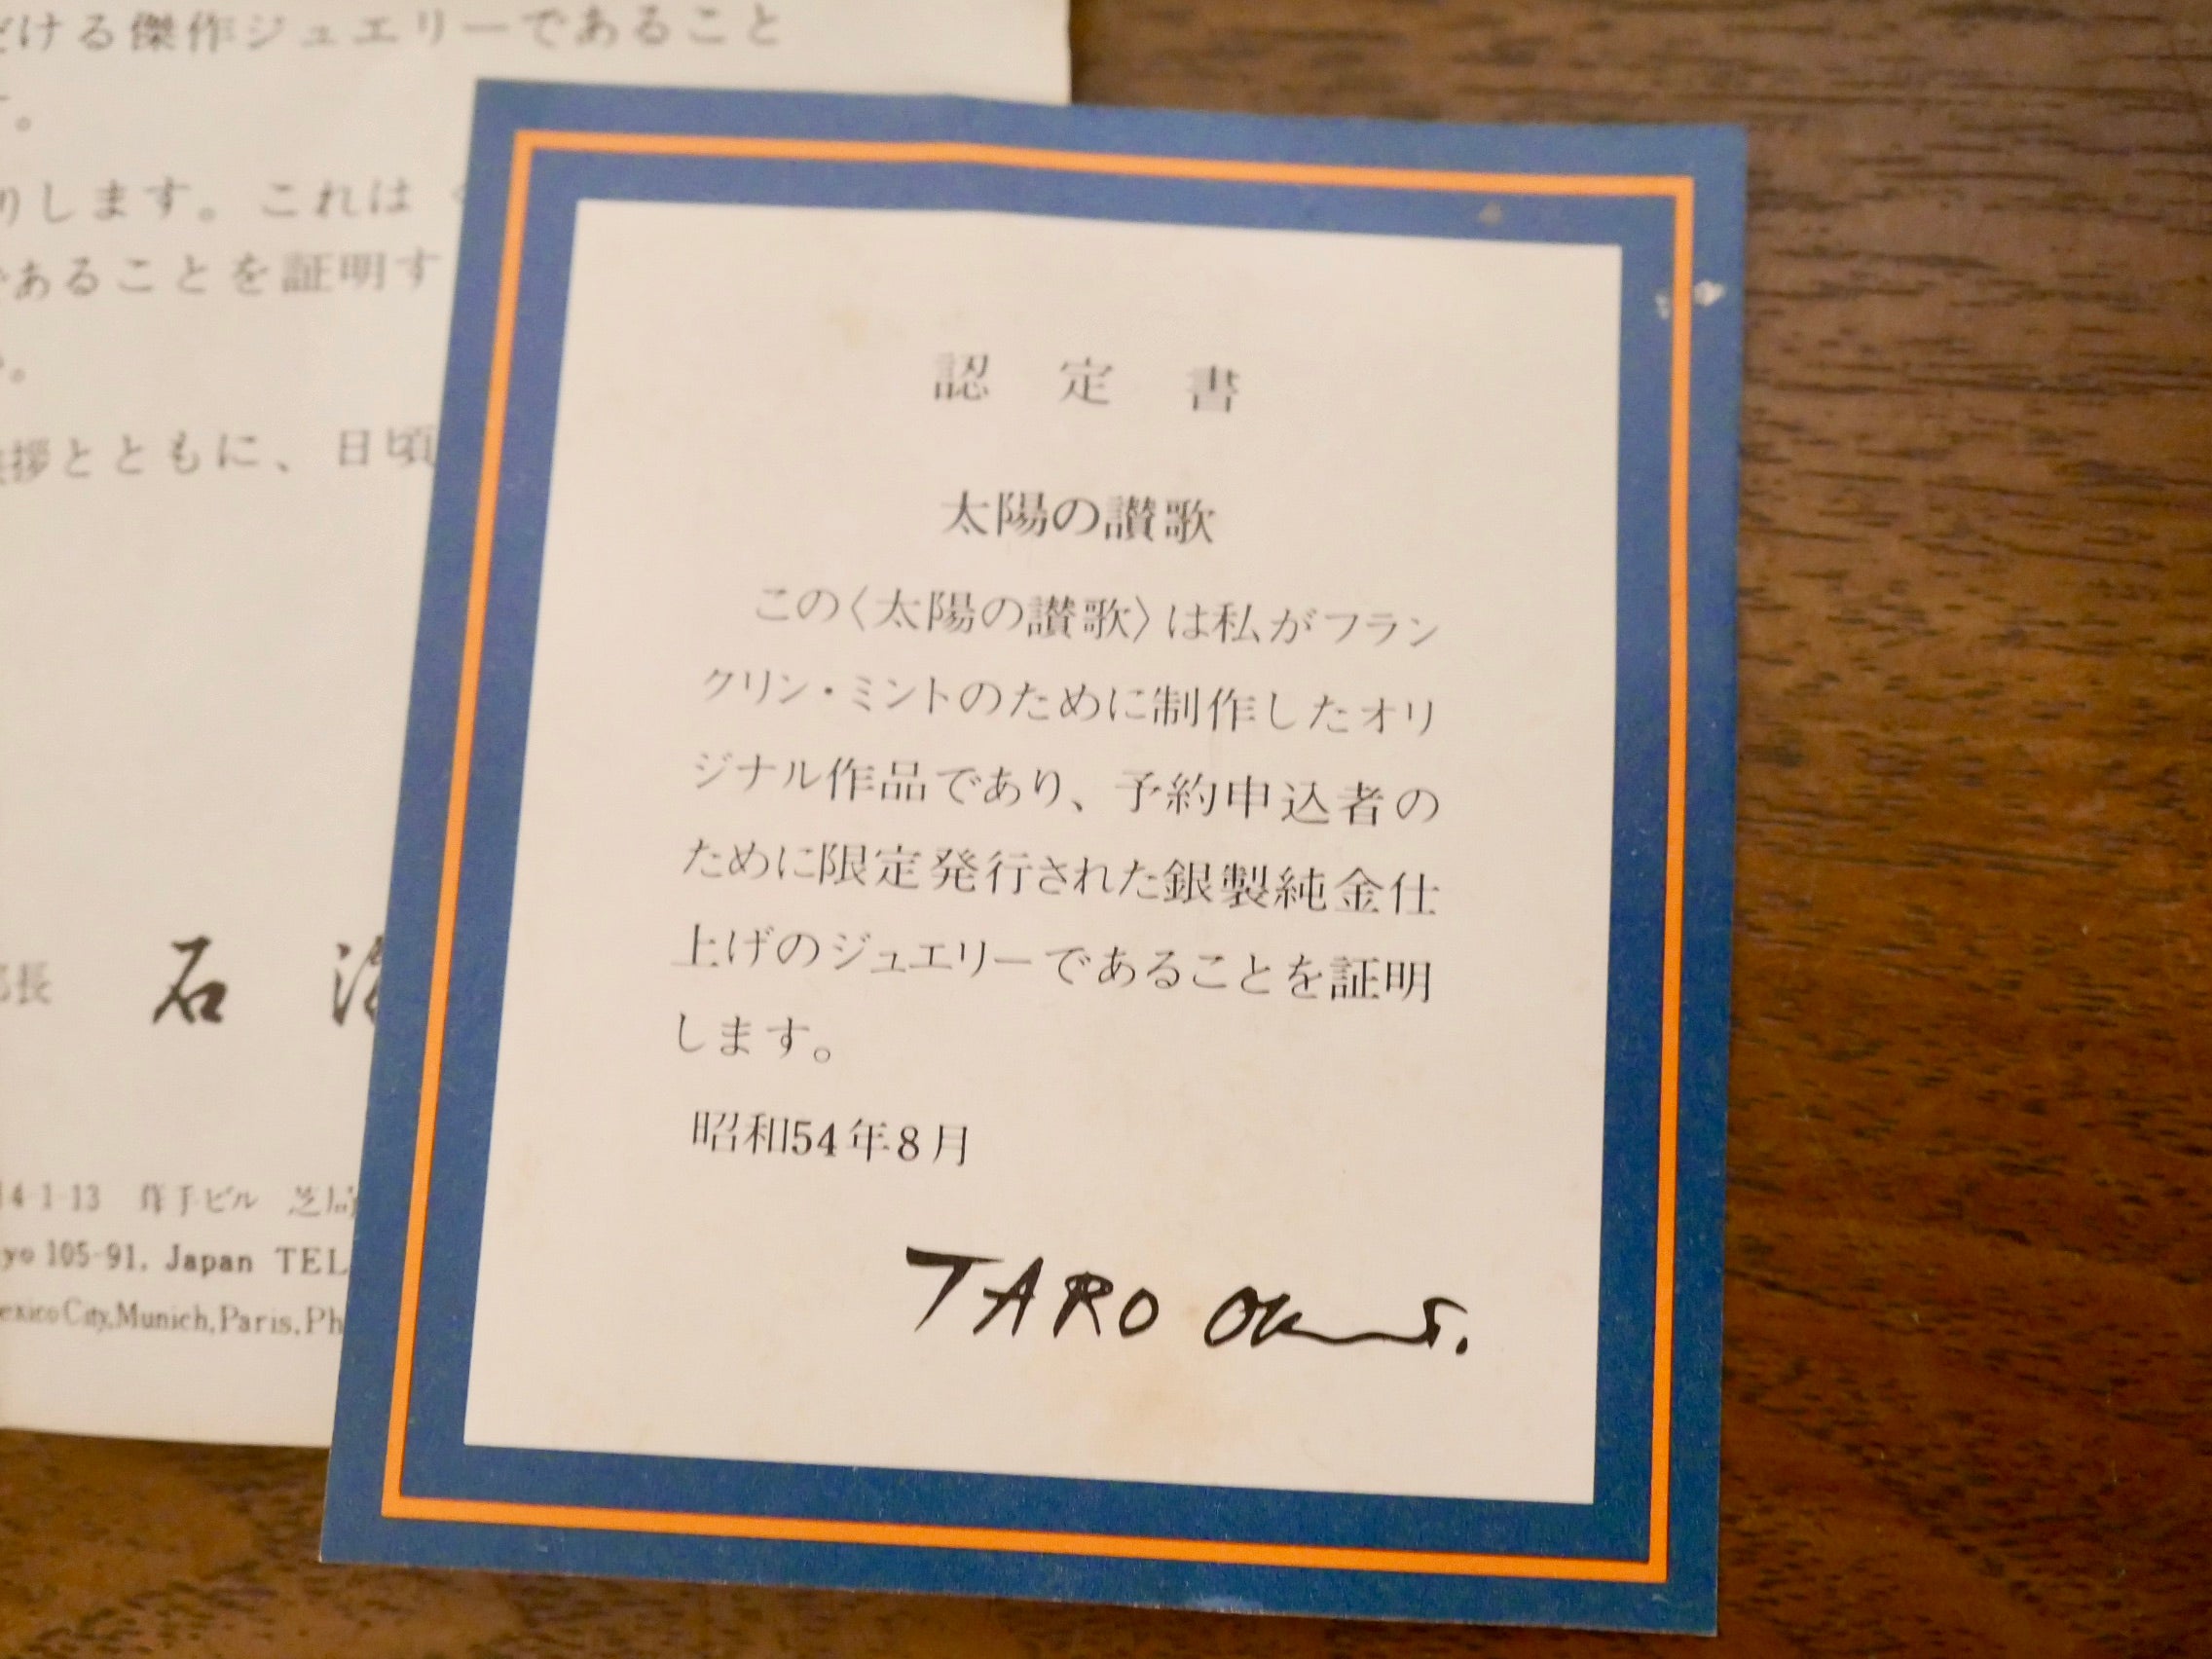 ける傑作ジュエリーであること
。
りします。これは
であることを証明す
。
拶とともに、日頃
長 石
4-1-13 ビル 芝
yo 105-91, Japan TEL
exico City, Munich, Paris, Ph
認定書
太陽の讃歌
この〈太陽の讃歌〉は私がフラン
クリン・ミントのために制作したオリ
ジナル作品であり、予約申込者の
ために限定発行された銀製純金仕
上げのジュエリーであることを証明
します。
昭和54年8月
TARO